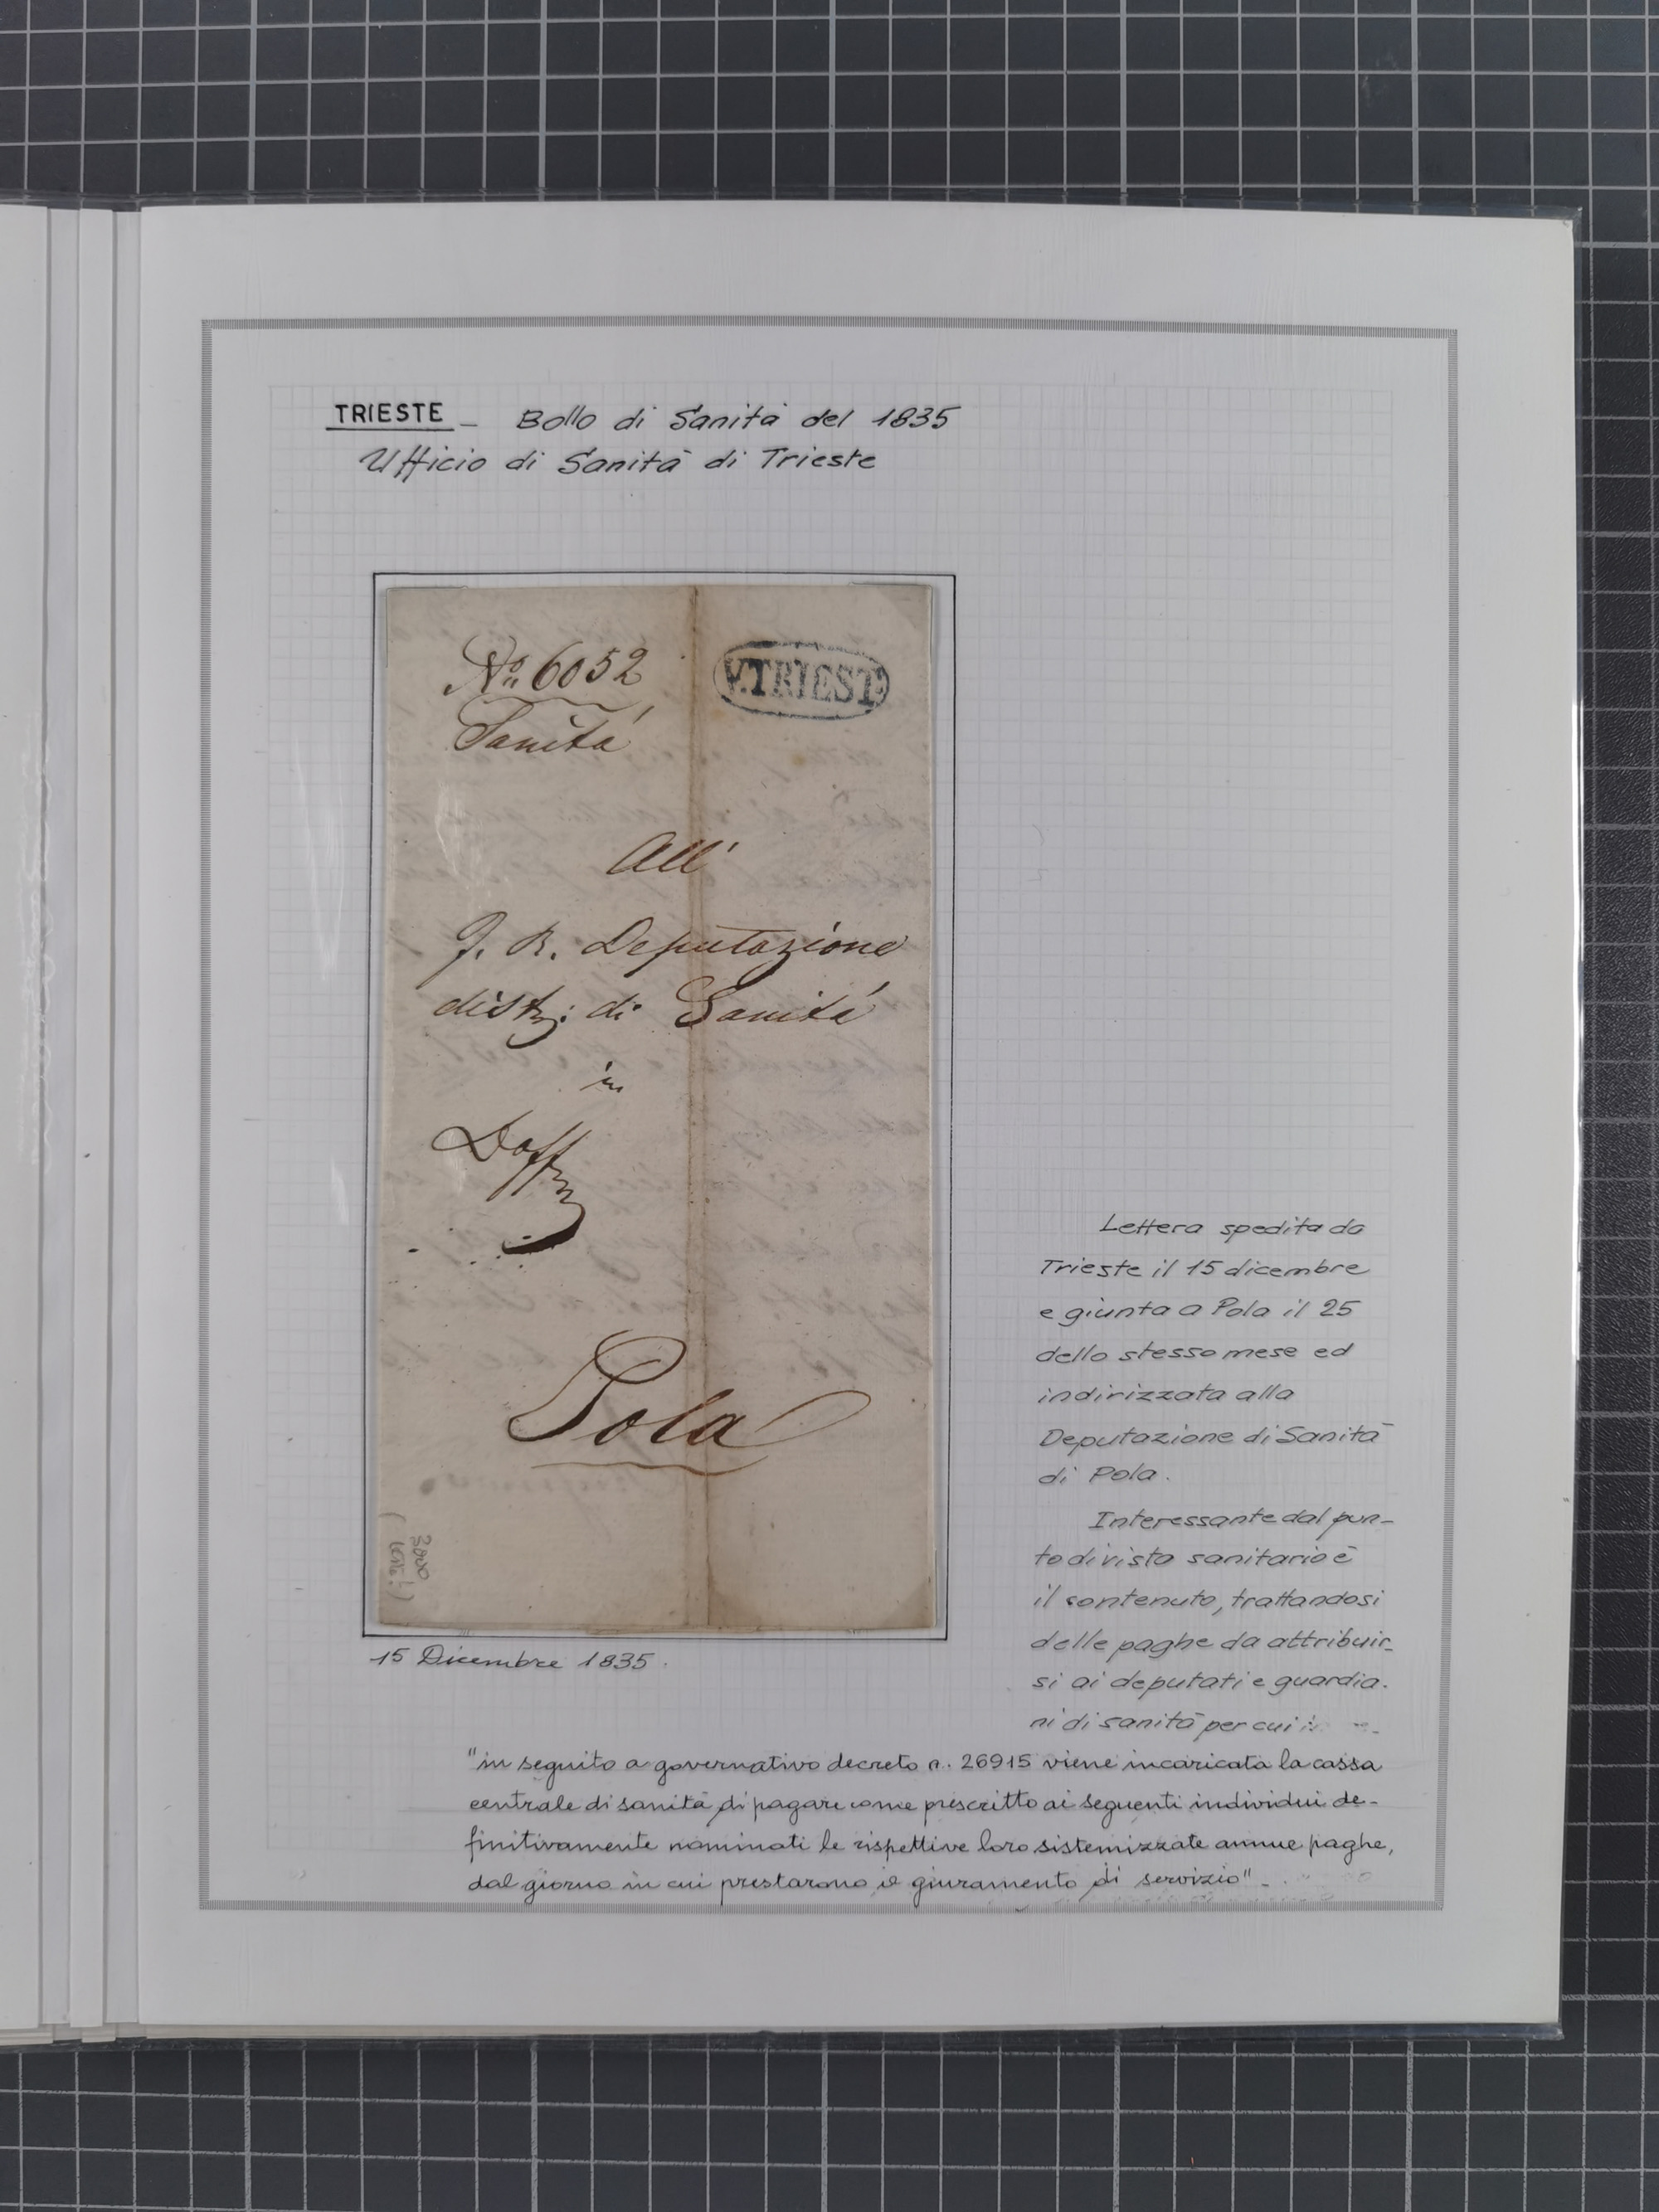 TRIESTE _ Bollo di Sanità del 1835
Ufficio di Sanità di Trieste
No. 6052
Sanità
V.TRIEST.
All'
J. R. Deputazione
distr: di Sanità
in
Pola
15 Dicembre 1835.
Lettera spedita da
Trieste il 15 dicembre
e giunta a Pola il 25
dello stesso mese ed
indirizzata alla
Deputazione di Sanità
di Pola.
Interessante dal pun-
to di vista sanitario è
il contenuto, trattandosi
delle paghe da attribuir-
si ai deputati e guardia-
ni di sanità per cui
"in seguito a governativo decreto n. 26915 viene incaricata la cassa
centrale di sanità di pagare come prescritto ai seguenti individui de-
finitivamente nominati le rispettive loro sistemizzate annue paghe,
dal giorno in cui prestarono il giuramento di servizio"-